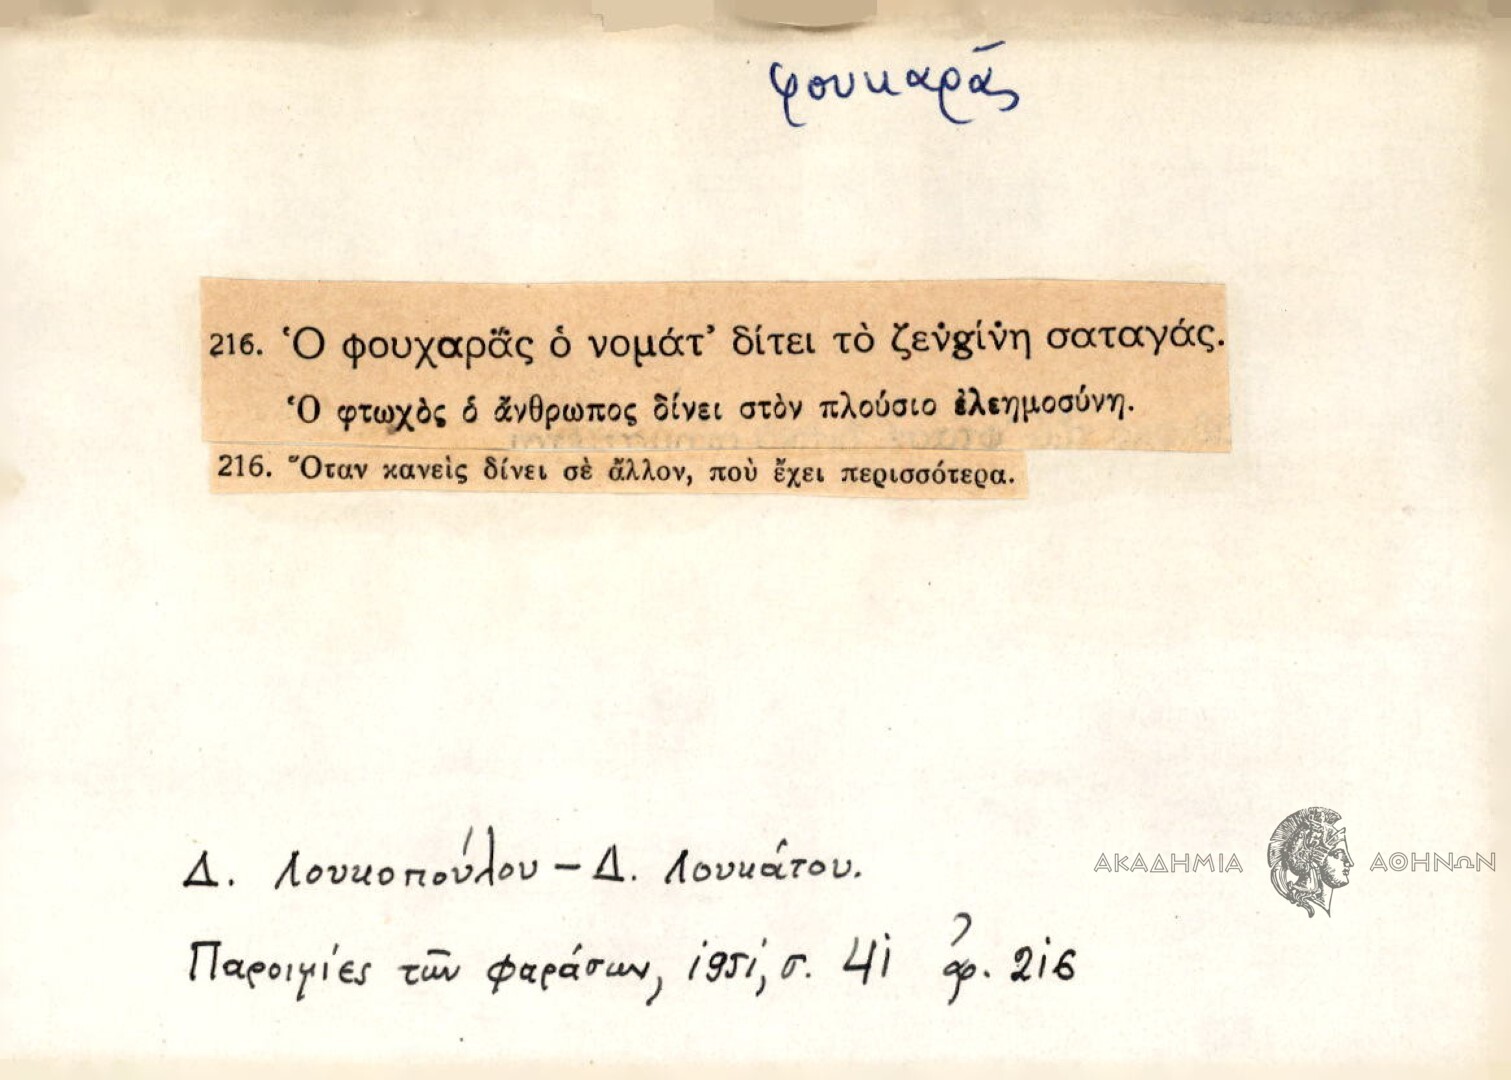 φουκαράς
216. Ὁ φουχαρᾰ́ς ὁ νομάτ’ δίτει τὸ ζεν̇gίν̇η σαταγάς.
Ὁ φτωχὸς ὁ ἄνθρωπος δίνει στὸν πλούσιο ἐλεημοσύνη.
216. Ὅταν κανεὶς δίνει σὲ ἄλλον, ποὺ ἔχει περισσότερα.
Δ. Λουκοπούλου – Δ. Λουκάτου.
Παροιμίες τῶν Φαράσων, 1951, σ. 41 ἀρ. 216
ΑΚΑΔΗΜΙΑ ΑΘΗΝΩΝ